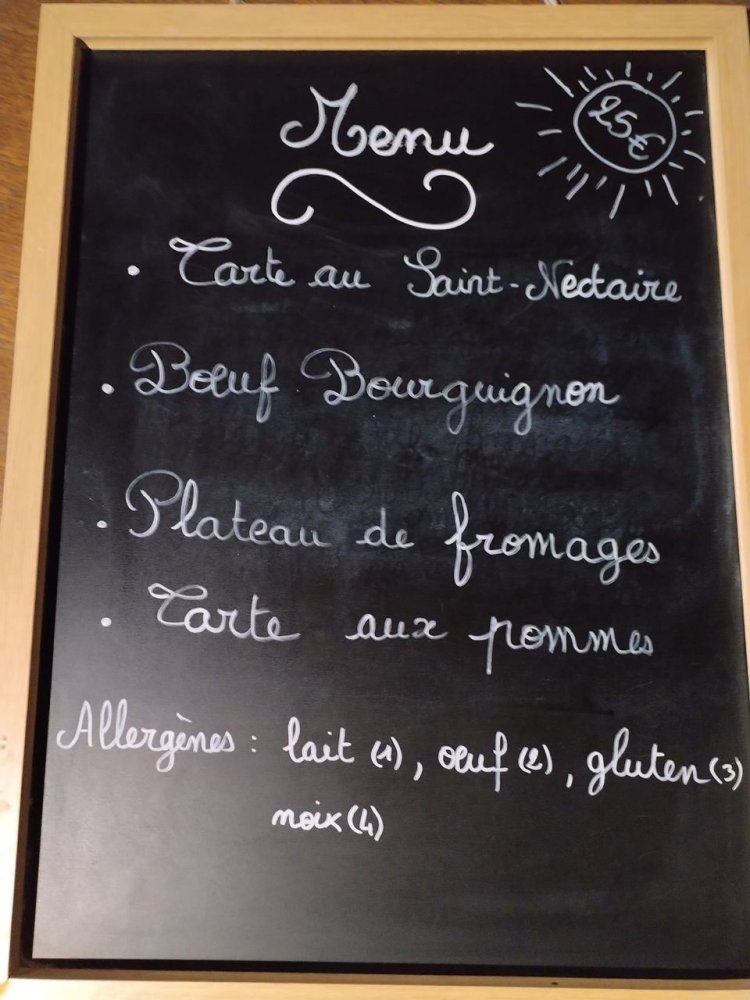 Menu
25€
• Tarte au Saint-Nectaire
• Bœuf Bourguignon
• Plateau de fromages
• Tarte aux pommes
Allergènes : lait (1), œuf (2), gluten (3)
noix (4)